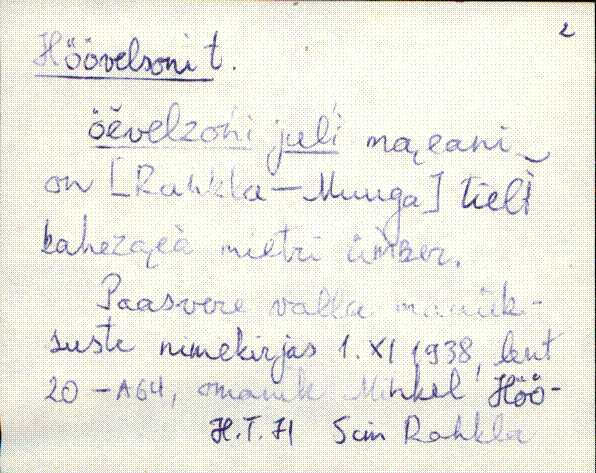 2
Höövelsoni t.
öövelzoni juli maeani
on [Rahkla—Muuga] tielt
kahezaea mietri ümber.
Paasvere valla maaük-
suste nimekirjas 1. XI 1938, leht
20 – A64, omanik Mihkel Höö-
H.T.H Sim Rahkla